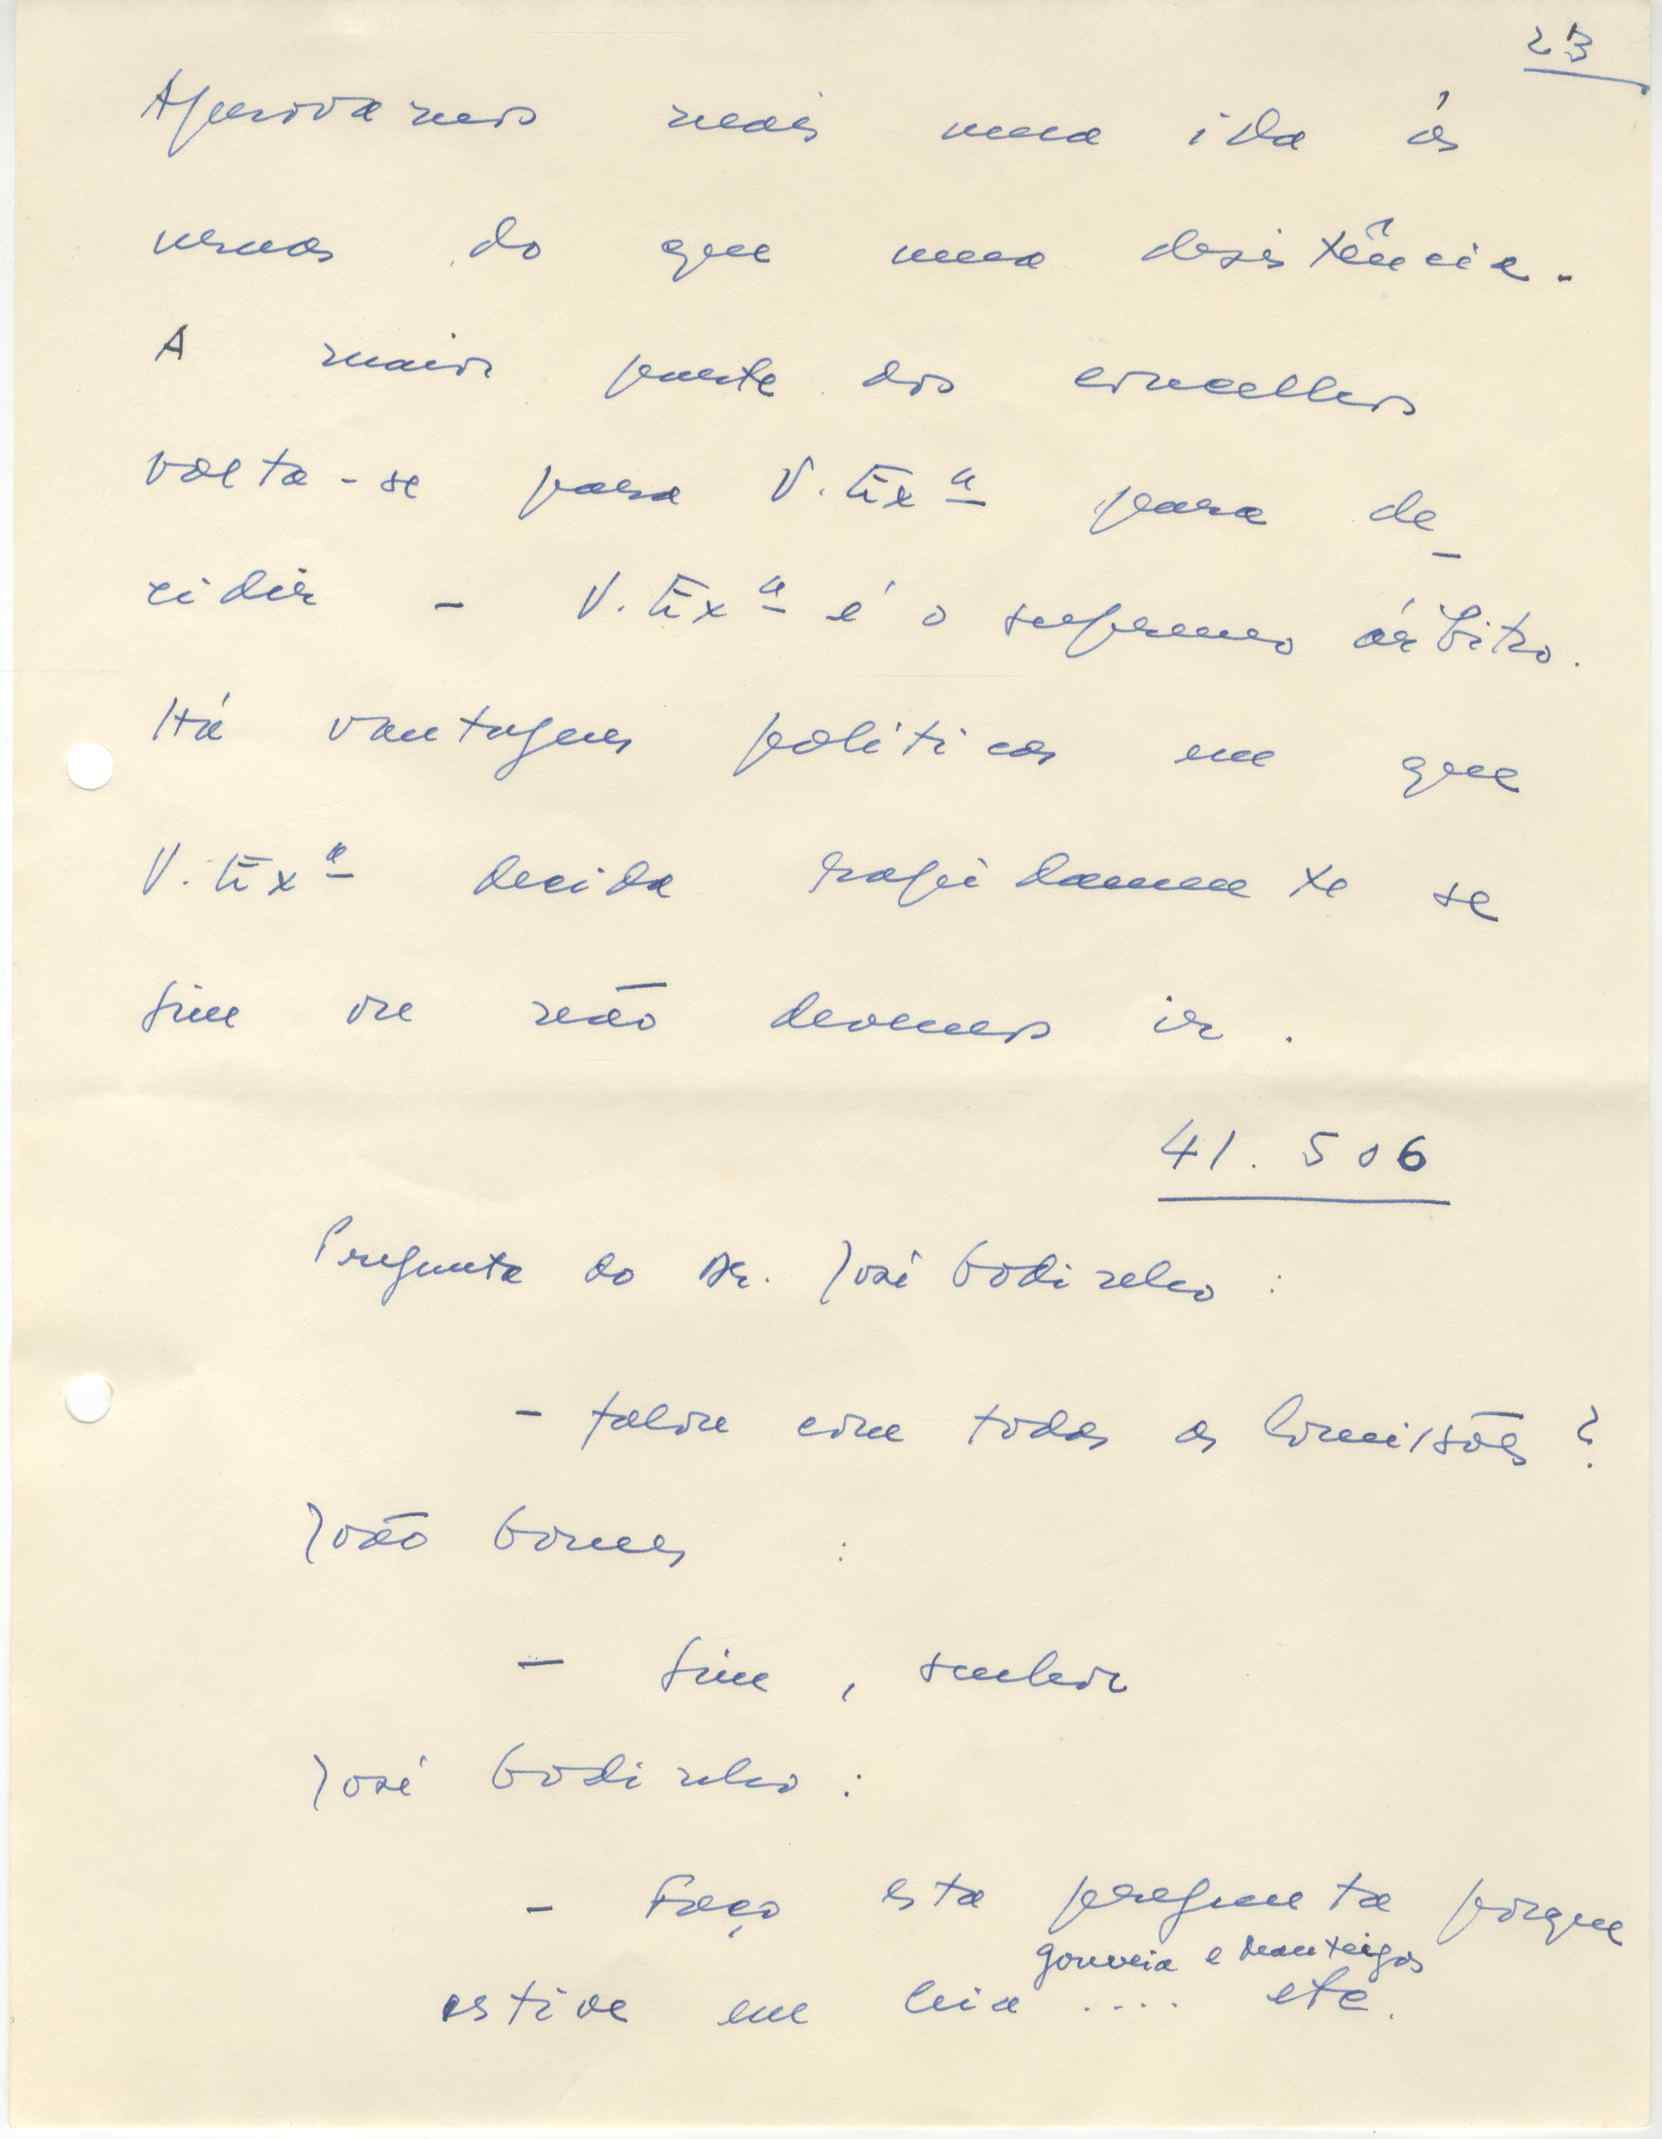 23
Aprovamos mais uma ida ás
urnas do que uma desistência.
A maior parte dos concelhos
volta-se para V. Exª para de_
cidir - V. Exª é o supremo árbitro.
Há vantagens politicas em que
V. Exª decida rapidamente se
sim ou não devemos ir.
41.506
Pregunta do Dr. José Godinho :
- falou com todas as Comissões ?
João Gomes :
- Sim, senhor
José Godinho :
- Faço esta pregunta porque
gouveia e manteigas
estive em Ceia .... etc.